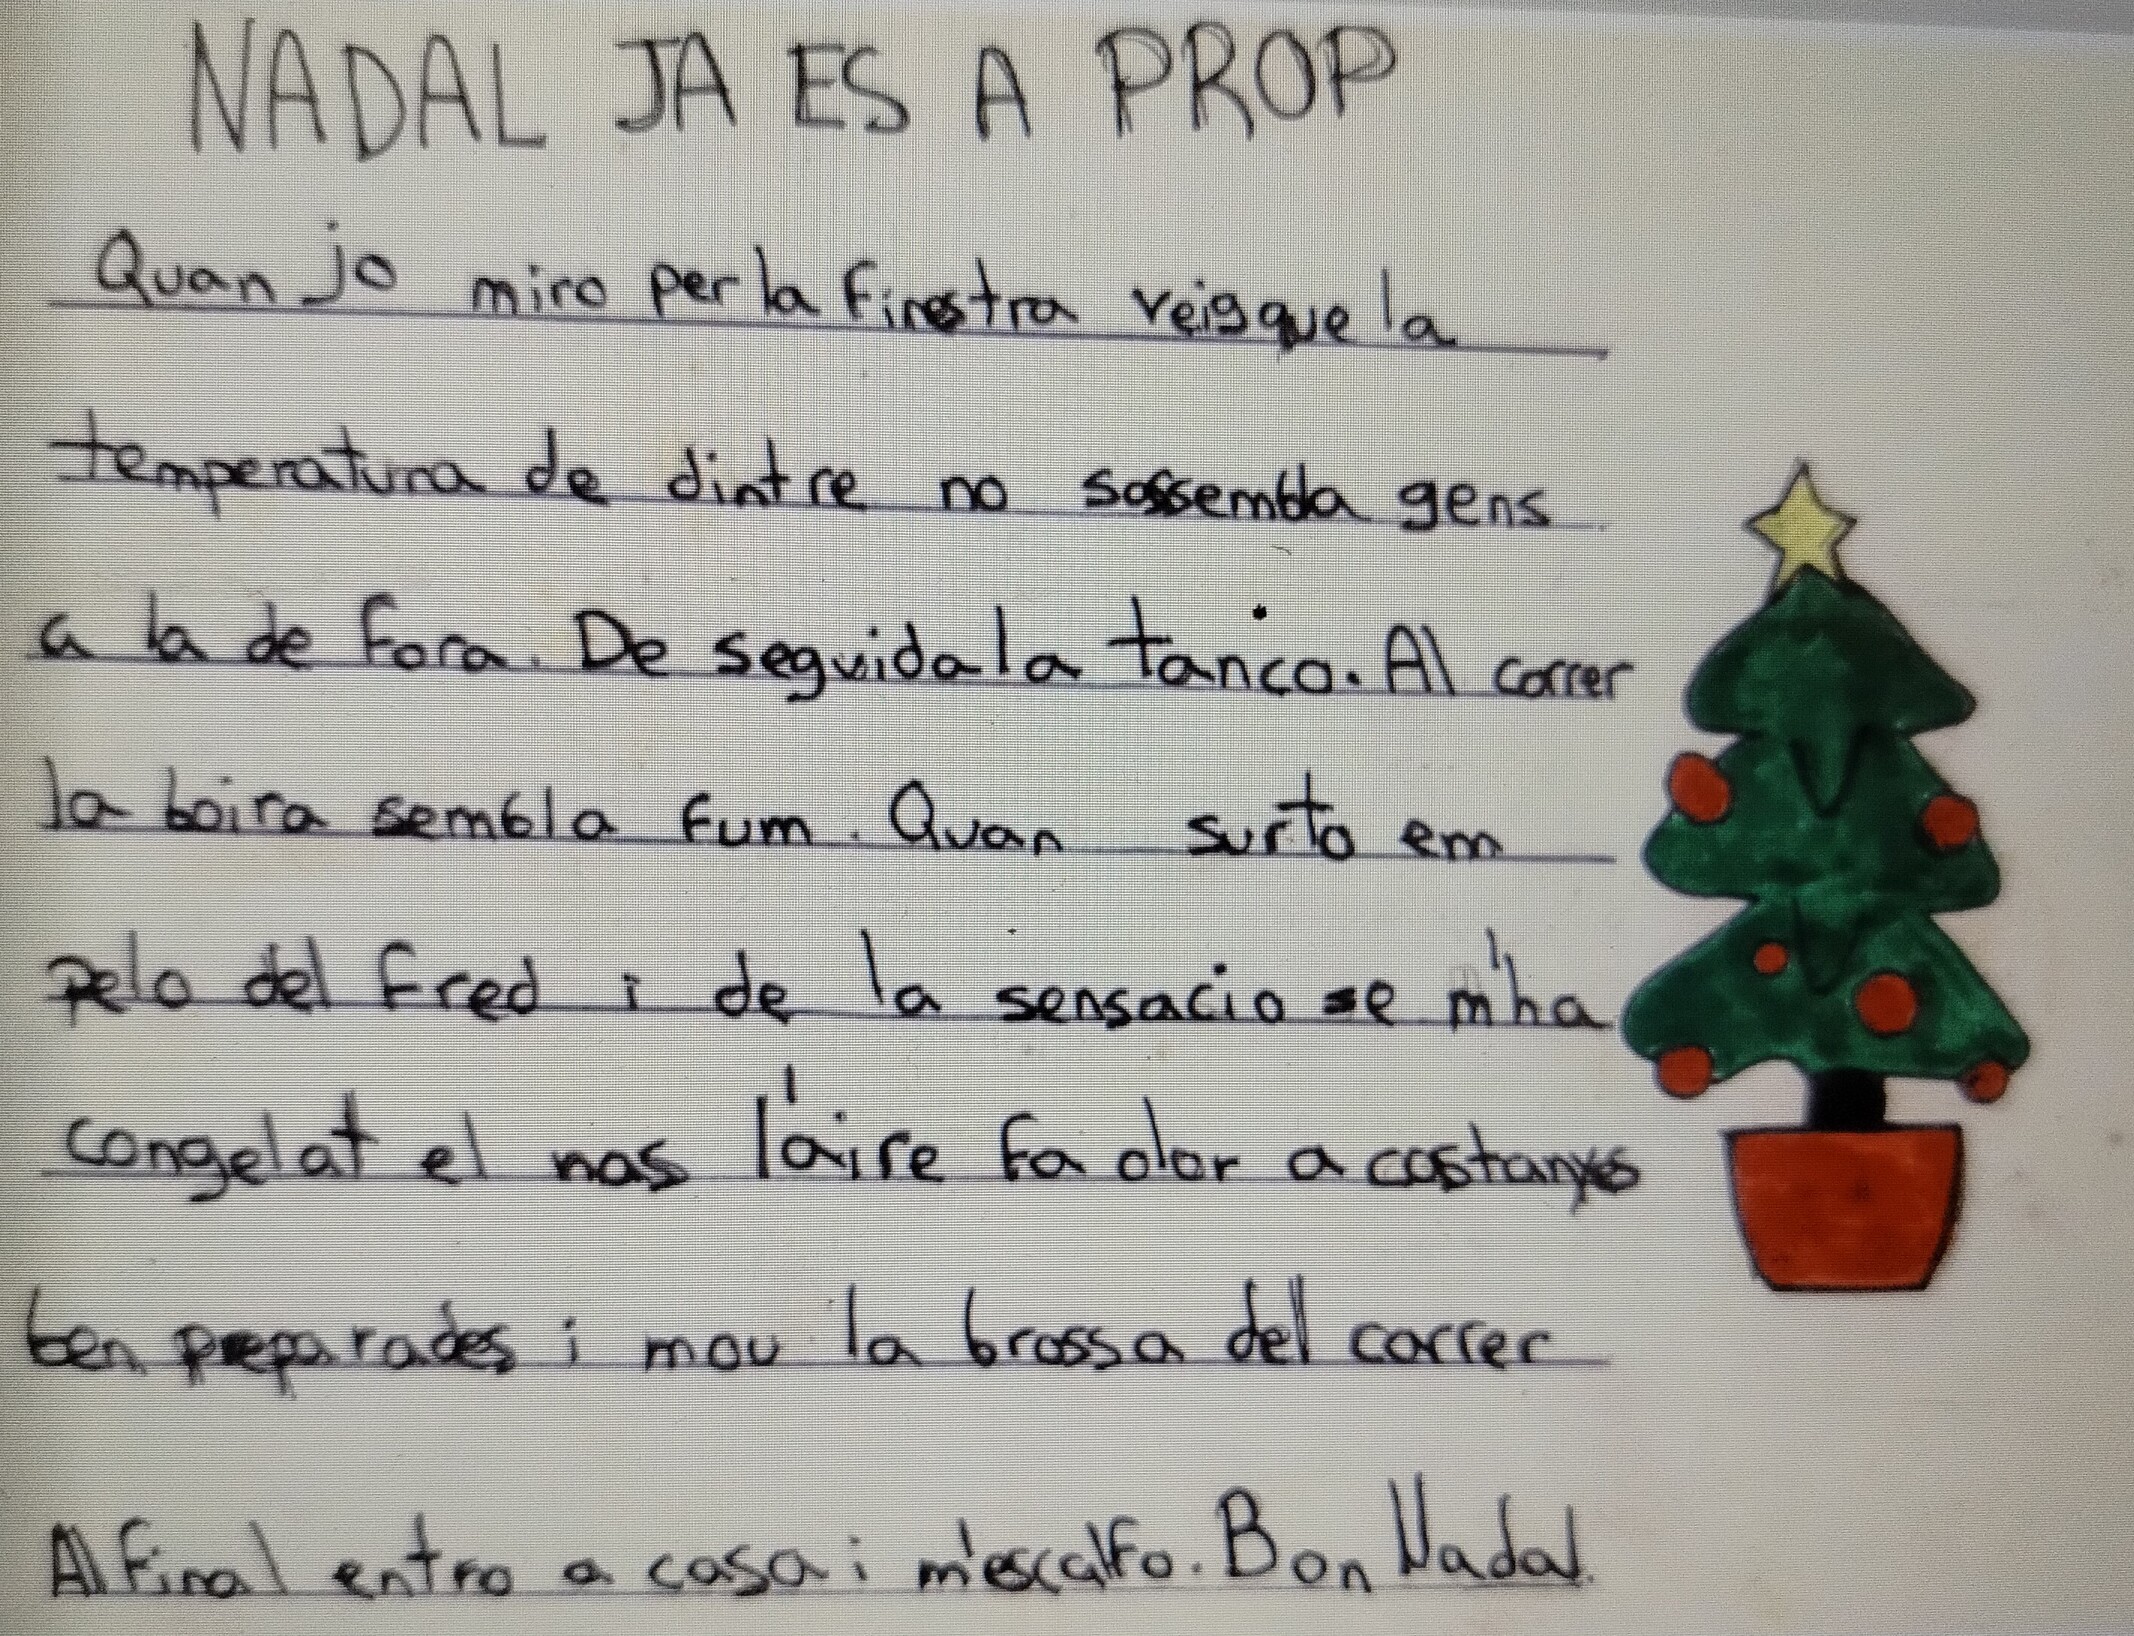 NADAL JA ES A PROP
Quan jo miro per la finestra veig que la
temperatura de dintre no sassembla gens
a la de fora. De seguida la tanco. Al carrer
la boira sembla fum. Quan surto em
pelo del fred i de la sensacio se m'ha
congelat el nas l'aire fa olor a castanyes
ben preparades i mou la brossa del carrer
Al final entro a casa i m'escalfo. Bon Nadal.